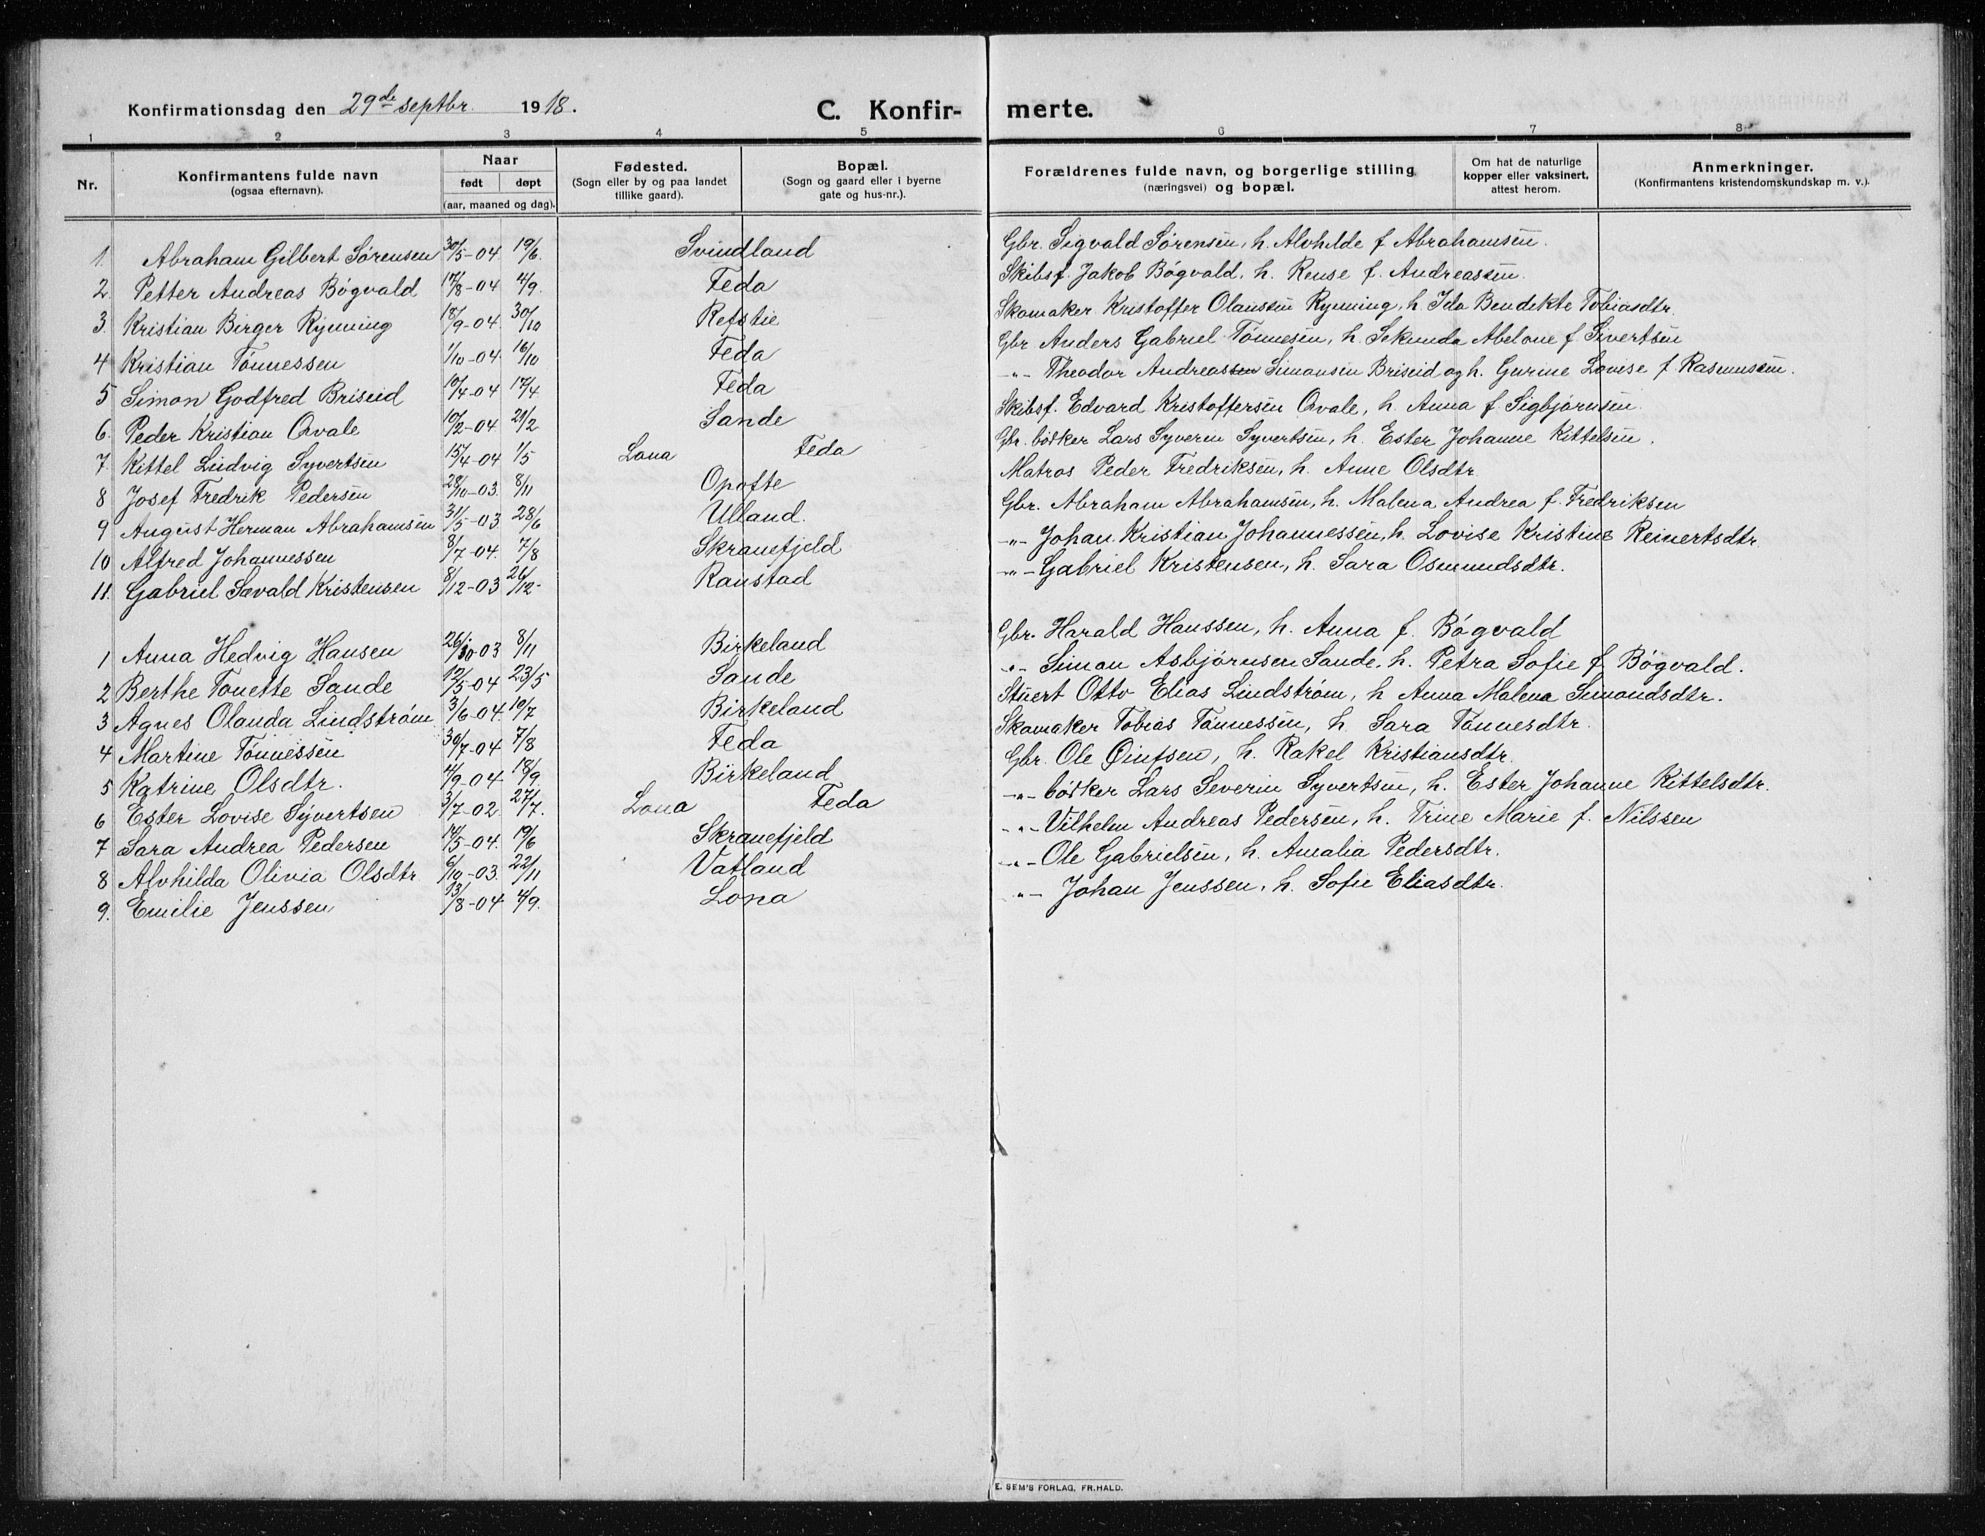 Konfirmationsdag den 29de septbr. 1918.
C. Konfir- merte.
1 2 3 4 5 6 7 8
Nr.
Konfirmantens fulde navn
(ogsaa efternavn).
Naar
født døpt
(aar, maaned og dag).
Fødested.
(Sogn eller by og paa landet
tillike gaard).
Bopæl.
(Sogn og gaard eller i byerne
gate og hus-nr.).
Forældrenes fulde navn, og borgerlige stilling
(næringsvei) og bopæl.
Om hat de naturlige
kopper eller vaksinert,
attest herom.
Anmerkninger.
(Konfirmantens kristendomskundskap m. v.).
1 Abraham Gilbert Sørensen 30/5-04 19/6. Svindland Gbr. Sigvald Sørensen, h. Alvhilde f Abrahamsen.
2 Petter Andreas Bøgvald 17/8-04 4/9. Feda Skibsf. Jakob Bøgvald, h. Rense f. Andreassen.
3. Kristian Birger Rynning 18/9-04. 30/10 Refstie Skomaker Kristoffer Olaussen Rynning, h Ida Bendikte Tobiasdtr.
4 Kristian Tønnessen 1/10-04. 16/10 Feda Gbr Anders Gabriel Tønnesen, h. Sekunda Abelone f Sivertsen
5 Simon Godfred Briseid 10/4-04 17/4 Feda -"- Theodor Andreassen Simonsen Briseid og h. Gurine Lovise f. Rasmussen.
6. Peder Kristian Qvale 10/2-04 21/2 Sande Skibsf. Edvard Kristoffersen Qvale, h. Anna f. Sigbjørnsen.
7. Kittel Ludvig Syvertsen 15/4-04 1/5 Lona Feda Gbr. bødker Lars Syveren Syvertsen, h. Ester Johanne Kittelsen.
8 Josef Fredrik Pedersen 28/10-03. 8/11 Opofte Matros Peder Fredriksen, h. Anne Olsdtr
9 August Herman Abrahamsen 31/5-03 28/6 Ulland. Gbr. Abraham Abrahamsen, h. Malena Andrea f. Fredriksen
10 Alfred Johannessen 8/7-04. 7/8 Skranefjeld -"- Johan Kristian Johannessen, h. Lovise Kristine Reinertsdtr.
11. Gabriel Sævald Kristensen 8/12-03 26/12- Raustad -"- Gabriel Kristensen, h. Sara Osmundsdtr.
1 Anna Hedvig Hansen 26/10-03 8/11 Birkeland Gbr. Harald Hanssen, h. Anna f. Bøgvald
2 Berthe Tonette Sande 12/5-04 23/5 Sande -"- Simon Asbjørnsen Sande, h. Petra Sofie f. Bøgvald.
3 Agnes Olanda Lindstrøm 3/6-04. 10/7 Birkeland Stuert Otto Elias Lindstrøm, h Anna Malena Simonsdtr.
4 Martine Tønnessen 30/7-04 7/8 Feda Skomaker Tobias Tønnessen, h. Sara Tønnesdtr.
5 Katrine Olsdtr. 4/9-04 18/9. Birkeland Gbr. Ole Øinfsen, h. Rakel Kristiansdtr.
6 Ester Lovise Syvertsen 3/7-02 27/7. Lona Feda -"- bødker Lars Severin Syvertsen, h. Ester Johanne Kittelsdtr.
7 Sara Andrea Pedersen 14/5-04. 19/6 Skranefjeld -"- Vilhelm Andreas Pedersen, h. Trine Marie f. Nilssen
8 Alvhilda Olivia Olsdtr 6/10-03. 22/11 Vatland -"- Ole Gabrielsen, h. Amalia Pedersdtr.
9. Emilie Jenssen 13/8-04 4/9. Lona -"- Johan Jenssen, h. Sofie Eliasdtr.
E. SEM'S FORLAG, FR.HALD.